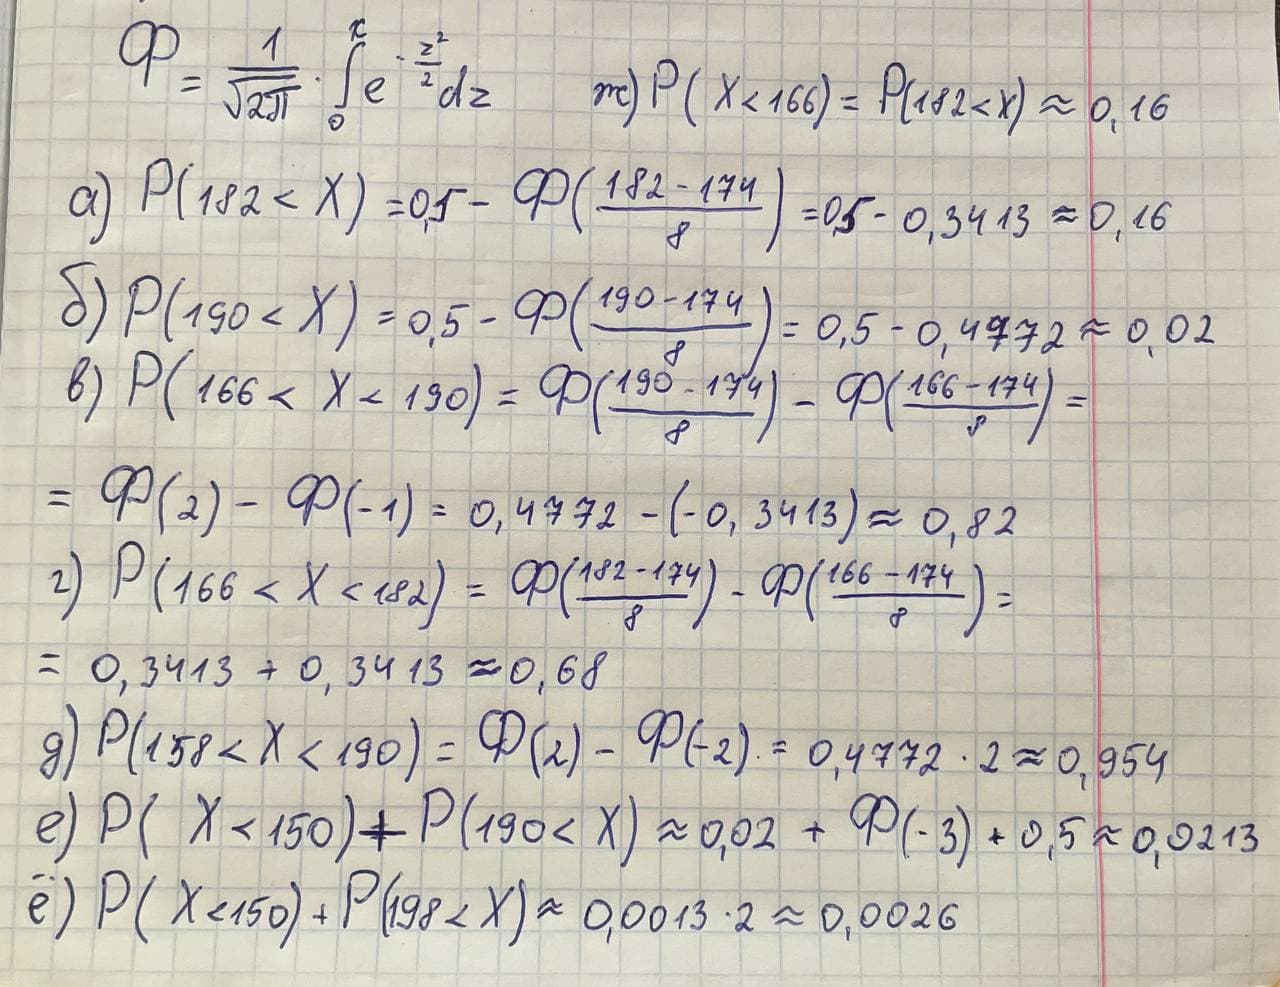 Ф = 1/√2π · ∫₀ˣ e^(-z²/2) dz
ж) P(X<166) = P(182<X) ≈ 0,16
а) P(182 < X) = 0,5 - Ф((182-174)/8) = 0,5 - 0,3413 ≈ 0,16
б) P(190 < X) = 0,5 - Ф((190-174)/8) = 0,5 - 0,4772 ≈ 0,02
в) P(166 < X < 190) = Ф((190-174)/8) - Ф((166-174)/8) =
= Ф(2) - Ф(-1) = 0,4772 - (-0,3413) ≈ 0,82
г) P(166 < X < 182) = Ф((182-174)/8) - Ф((166-174)/8) =
= 0,3413 + 0,3413 ≈ 0,68
д) P(158 < X < 190) = Ф(2) - Ф(-2) = 0,4772 · 2 ≈ 0,954
е) P(X < 150) + P(190 < X) ≈ 0,02 + Ф(-3) + 0,5 ≈ 0,0213
ё) P(X < 150) + P(198 < X) ≈ 0,0013 · 2 ≈ 0,0026